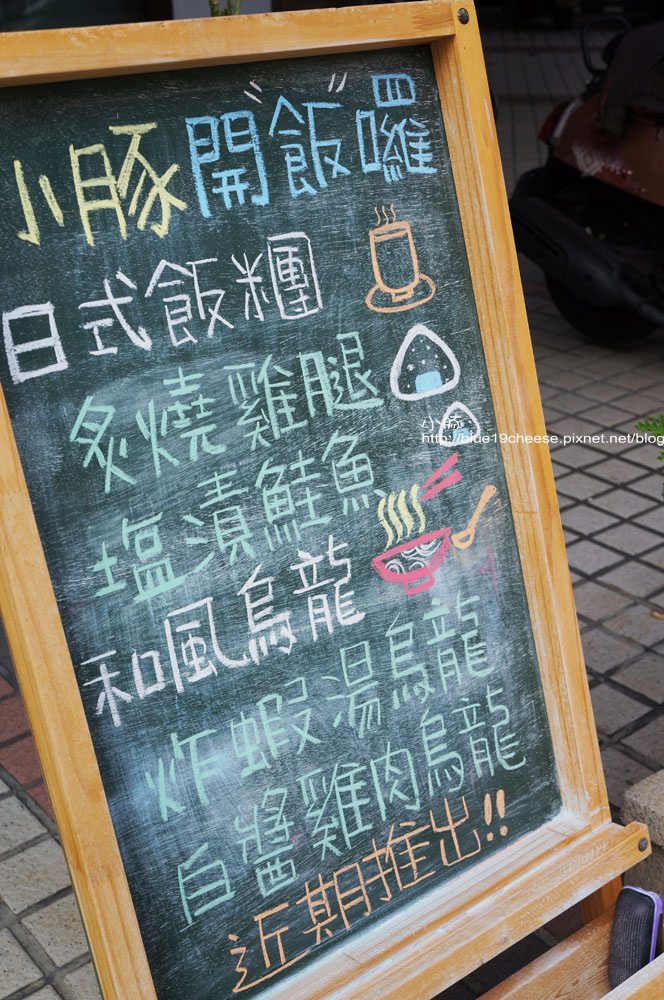 小豚開飯囉
日式飯糰
炙燒雞腿
塩漬鮭魚
和風烏龍
炸蝦湯烏龍
白醬雞肉烏龍
近期推出!!
http://blue19cheese.pixnet.net/blog